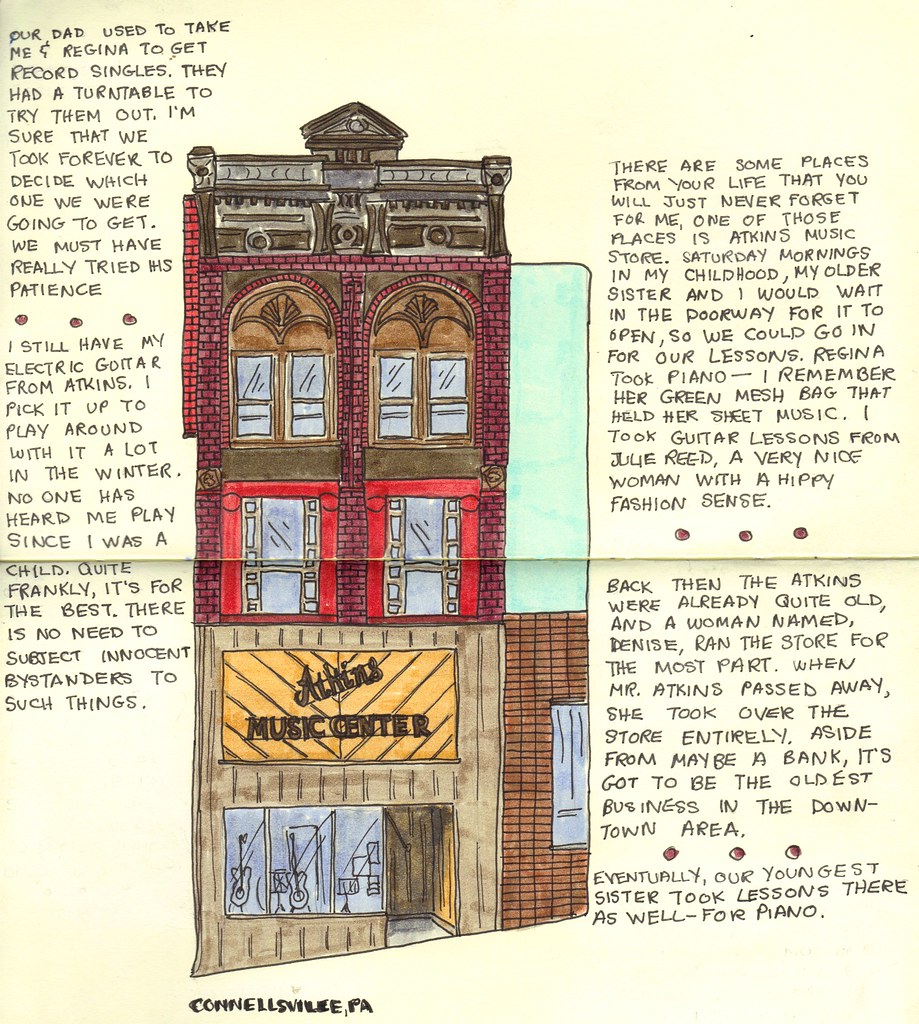 OUR DAD USED TO TAKE
ME & REGINA TO GET
RECORD SINGLES. THEY
HAD A TURNTABLE TO
TRY THEM OUT. I'M
SURE THAT WE
TOOK FOREVER TO
DECIDE WHICH
ONE WE WERE
GOING TO GET.
WE MUST HAVE
REALLY TRIED HIS
PATIENCE
I STILL HAVE MY
ELECTRIC GUITAR
FROM ATKINS. I
PICK IT UP TO
PLAY AROUND
WITH IT A LOT
IN THE WINTER.
NO ONE HAS
HEARD ME PLAY
SINCE I WAS A
CHILD. QUITE
FRANKLY, IT'S FOR
THE BEST. THERE
IS NO NEED TO
SUBJECT INNOCENT
BYSTANDERS TO
SUCH THINGS.
Atkins
MUSIC CENTER
THERE ARE SOME PLACES
FROM YOUR LIFE THAT YOU
WILL JUST NEVER FORGET
FOR ME, ONE OF THOSE
PLACES IS ATKINS MUSIC
STORE. SATURDAY MORNINGS
IN MY CHILDHOOD, MY OLDER
SISTER AND I WOULD WAIT
IN THE DOORWAY FOR IT TO
OPEN, SO WE COULD GO IN
FOR OUR LESSONS. REGINA
TOOK PIANO — I REMEMBER
HER GREEN MESH BAG THAT
HELD HER SHEET MUSIC. I
TOOK GUITAR LESSONS FROM
JULIE REED, A VERY NICE
WOMAN WITH A HIPPY
FASHION SENSE.
BACK THEN THE ATKINS
WERE ALREADY QUITE OLD,
AND A WOMAN NAMED,
DENISE, RAN THE STORE FOR
THE MOST PART. WHEN
MR. ATKINS PASSED AWAY,
SHE TOOK OVER THE
STORE ENTIRELY. ASIDE
FROM MAYBE A BANK, IT'S
GOT TO BE THE OLDEST
BUSINESS IN THE DOWN-
TOWN AREA.
EVENTUALLY, OUR YOUNGEST
SISTER TOOK LESSONS THERE
AS WELL - FOR PIANO.
CONNELLSVILLE, PA